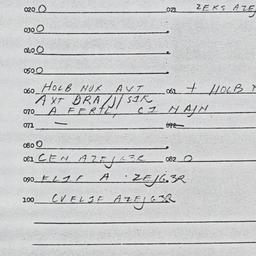 020 O 021 ZEKS AZEJ
030 O
040 O
050 O
060 HOLB NUK AVT 061 + HOLB
AXT
070 A FERTL, CI NAJN
071 — 072 —
080 O
081 CEN 082 O
090 ELIF A · ZEJG3R
100 CVELIF AZEJG3R